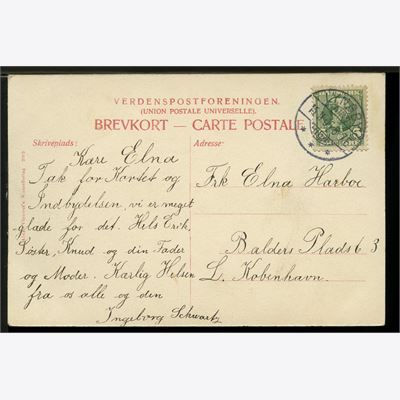 VERDENSPOSTFORENINGEN.
(UNION POSTALE UNIVERSELLE).
BREVKORT — CARTE POSTALE
Skriveplads:
Adresse:
Kære Elna
Tak for Kortet og
Indbydelsen, vi er meget
glade for det. Hels Erik,
Søster, Knud og din Fader
og Moder. Kærlig Helsen
fra os alle og den
Ingeborg Schwartz
Frk Elna Harboe
Balders Plads 6 3
L. København.